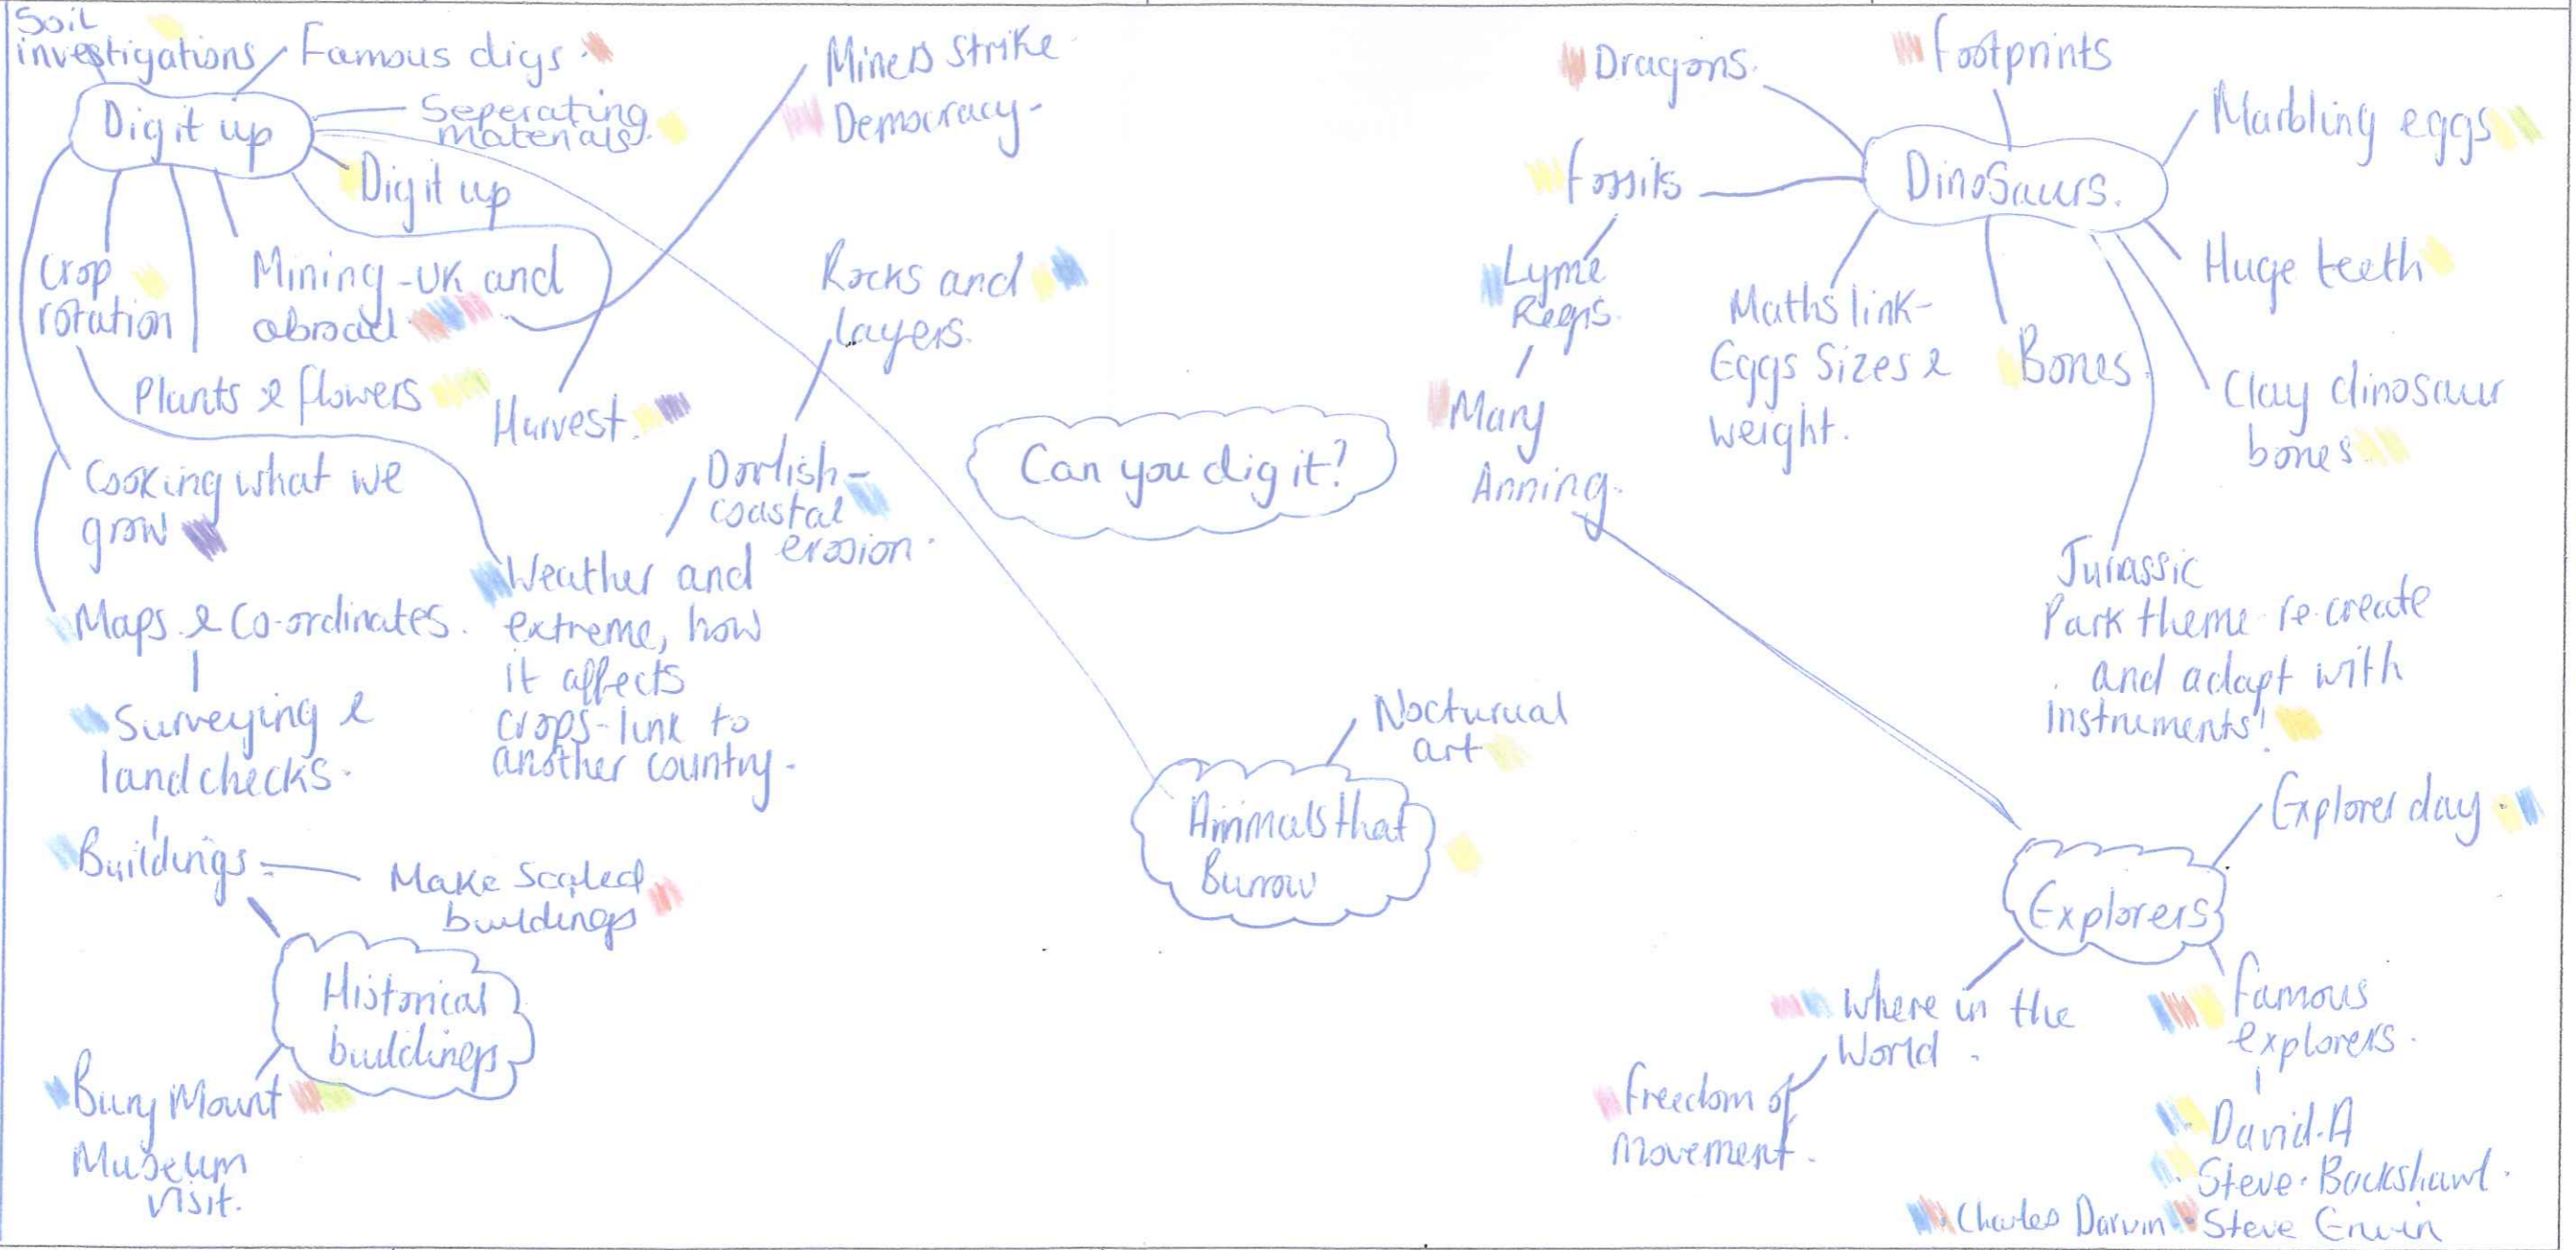 Soil
investigations
Famous digs
Dig it up
Seperating
materials.
Dig it up
Crop
rotation
Mining - UK and
abroad
Plants & flowers
Harvest.
Miners Strike
Democracy-
Rocks and
layers.
Cooking what we
grow
Dorlish-
coastal
erosion.
Weather and
extreme, how
it affects
crops-link to
another country.
Maps & Co-ordinates.
Surveying &
land checks.
Buildings
Make Scaled
buildings
Historical
buildings
Bury Mount
Museum
visit.
Can you dig it?
Nocturual
art
Animals that
Burrow
Dragons.
Footprints
Marbling eggs
Fossils
DinoSaurs.
Lyme
Regis.
Huge teeth
Maths link-
Eggs Sizes &
weight.
Bones
Clay dinosaur
bones
Mary
Anning.
Jurassic
Park theme re-create
and adapt with
instruments!
Explorer day
Explorers
Where in the
World.
Freedom of
movement.
Famous
explorers.
David.A
Steve. Backshawl.
Charles Darwin
Steve Erwin